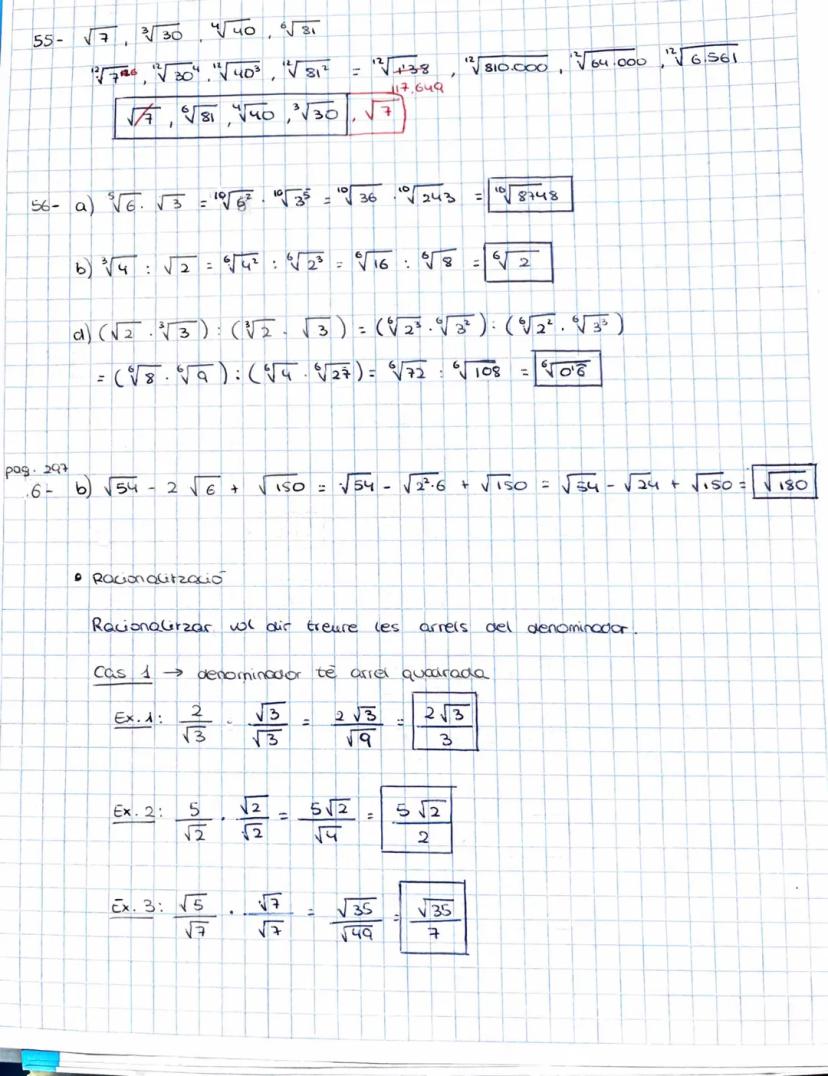 55- √7 , ³√30 , ⁴√40 , ⁶√81
¹²√7⁶ , ¹²√30⁴ , ¹²√40³ , ¹²√81² = ¹²√138 , ¹²√810.000 , ¹²√64.000 , ¹²√6.561
117.649
√7 , ⁶√81 , ⁴√40 , ³√30 , √7
56- a) ⁵√6 · √3 = ¹⁰√6² · ¹⁰√3⁵ = ¹⁰√36 · ¹⁰√243 = ¹⁰√8748
b) ³√4 : √2 = ⁶√4² : ⁶√2³ = ⁶√16 : ⁶√8 = ⁶√2
d) (√2 · ³√3) : (³√2 · √3) = (⁶√2³ · ⁶√3²) : (⁶√2² · ⁶√3³)
= (⁶√8 · ⁶√9) : (⁶√4 · ⁶√27) = ⁶√72 : ⁶√108 = ⁶√0'6
pag. 297
6- b) √54 - 2 √6 + √150 = √54 - √2²·6 + √150 = √54 - √24 + √150 = √180
• Racionalització
Racionalitzar vol dir treure les arrels del denominador.
Cas 1 → denominador té arrel quadrada
Ex. 1: 2/√3 · √3/√3 = 2√3/√9 = 2√3/3
Ex. 2: 5/√2 · √2/√2 = 5√2/√4 = 5√2/2
Ex. 3: √5/√7 · √7/√7 = √35/√49 = √35/7